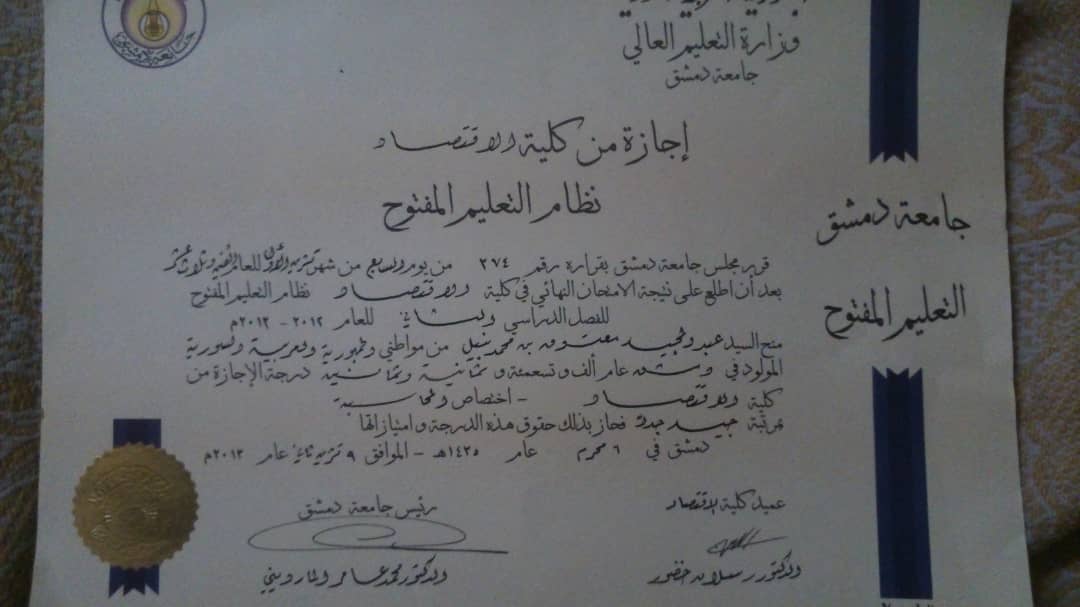 وزارة التعليم العالي
جامعة دمشق
إجازة من كلية الاقتصاد
نظام التعليم المفتوح
جامعة دمشق
التعليم المفتوح
قرر مجلس جامعة دمشق بقراره رقم ٢٧٤ من يوم السابع من شهر تشرين الأول للعام ألفين وثلاث عشر
بعد أن اطلع على نتيجة الامتحان النهائي في كلية الاقتصاد نظام التعليم المفتوح
للفصل الدراسي الثاني للعام ٢٠١٢ - ٢٠١٣م
منح السيد عبد المجيد معتوق بن محمد نبيل من مواطني الجمهورية العربية السورية
المولود في دمشق عام ألف و تسعمئة و ثمانية وثمانين درجة الإجازة من
كلية الاقتصاد - اختصاص المحاسبة
بمرتبة جيد جداً فحاز بذلك حقوق هذه الدرجة و امتيازاتها
دمشق في ٦ محرم عام ١٤٣٥هـ - الموافق ٩ تشرين ثاني عام ٢٠١٣م
عميد كلية الاقتصاد
رئيس جامعة دمشق
الدكتور رسلان خضور
الدكتور محمد عامر المارديني